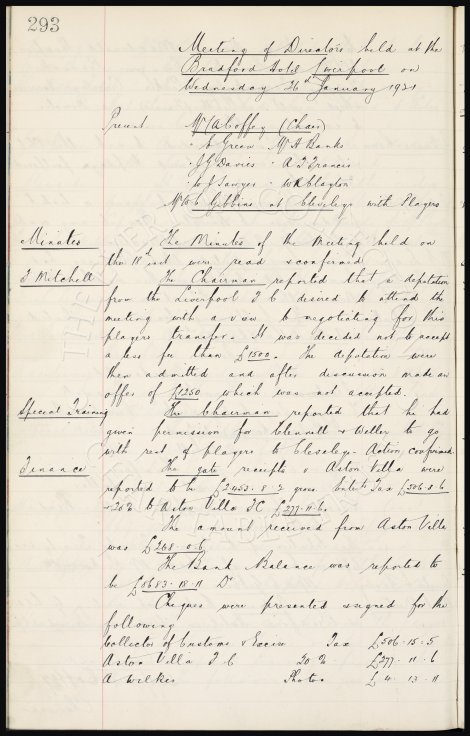 293
Meeting of Directors held at the
Bradford Hotel Liverpool on
Wednesday 26th January 1921
Present Mr C A Coffey (Chair)
" E Green Mr A Banks
" J G Davies " A T Francis
" W J Sawyer " W R Clayton
Mr W C Gibbins at Cleveleys with Players
Minutes The Minutes of the Meeting held on
the 18th inst were read & confirmed
F Mitchell The Chairman reported that a deputation
from the Liverpool F C desired to attend the
meeting with a view to negotiating for this
players transfer. It was decided not to accept
a less fee than £1500. The deputation were
then admitted and after discussion made an
offer of £1250 which was not accepted.
Special Training The Chairman reported that he had
given permission for Clennell & Weller to go
with rest of players to Cleveleys. Action Confirmed
Finance The gate receipts v Aston Villa were
reported to be £2453-8-2 gross. Entets Tax £506-8-6
& 20% to Aston Villa FC £277-11-6.
The amount received from Aston Villa
was £268-0-6
The Bank Balance was reported to
be £8683-18-11 Dr
Cheques were presented & signed for the
following
Collector of Customs & Excise Tax £506-15-5
Aston Villa F C 20% £277-11-6
A Wilkes Photos £4-13-11